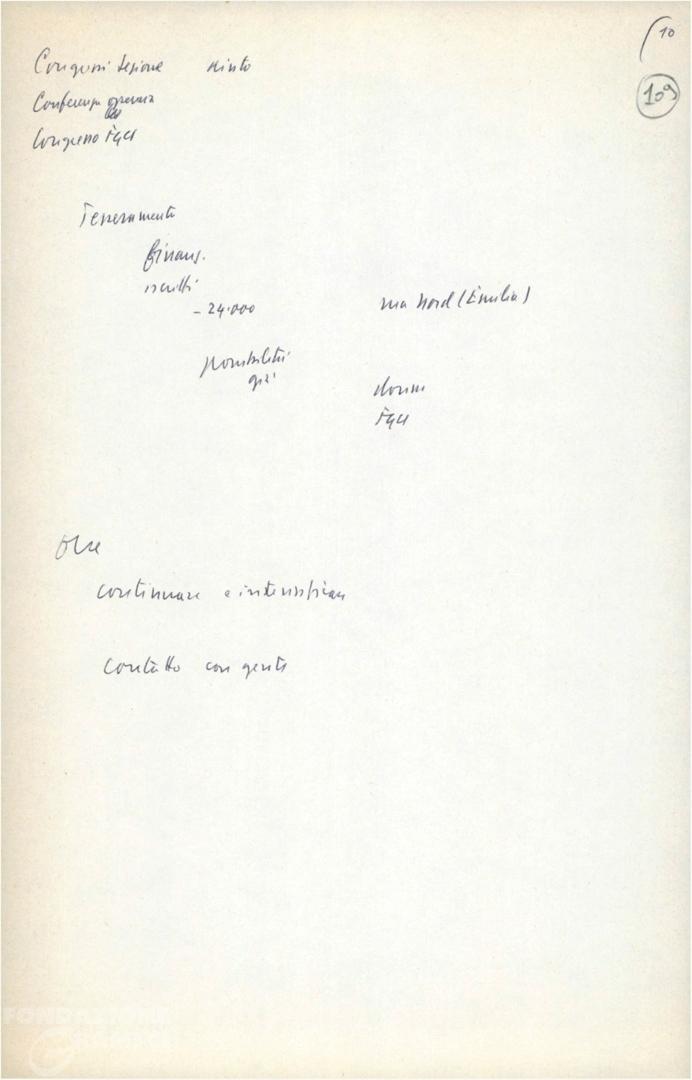 10
109
Congressi sezione
Conferenza operaia
Congresso FGCI
Tesseramento
finanz.
iscritti
- 24.000 ma Nord (Emilia)
possibilità
già
donne
FGCI
Oltre
continuare e intensificare
contatto con gente
FONDAZIONE
GRAMSCI